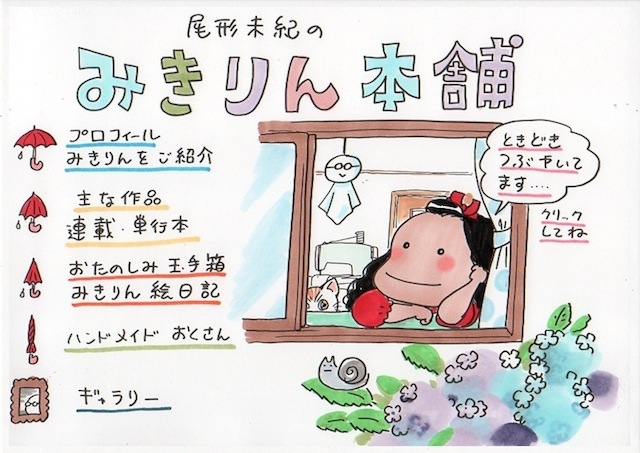 尾形未紀の
みきりん本舗
プロフィール
みきりんをご紹介
主な作品
連載・単行本
おたのしみ玉手箱
みきりん絵日記
ハンドメイド おくさん
ギャラリー
ときどき
つぶやいて
ます‥‥
クリック
してね